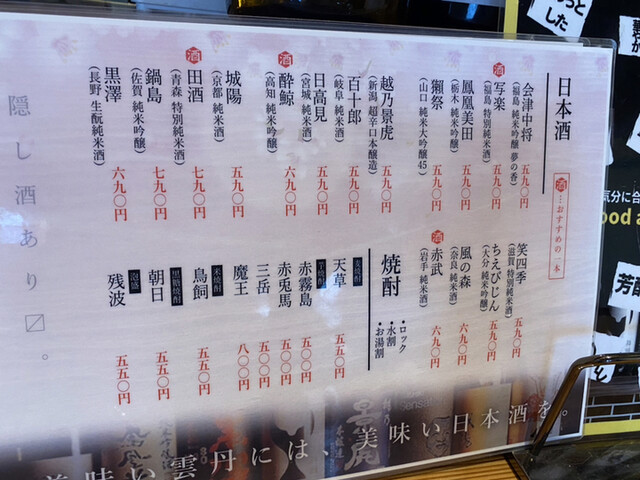 日本酒
酒…おすすめの一本
会津中将
(福島 純米吟醸 夢の香)
五九〇円
酒
写楽
(福島 特別純米酒)
五九〇円
鳳凰美田
(栃木 純米吟醸)
五九〇円
獺祭
(山口 純米大吟醸45)
五九〇円
越乃景虎
(新潟 超辛口本醸造)
五九〇円
百十郎
(岐阜 純米酒)
五九〇円
日高見
(宮城 純米酒)
五九〇円
酒
酔鯨
(高知 純米吟醸)
六九〇円
城陽
(京都 純米酒)
五九〇円
酒
田酒
(青森 特別純米酒)
七九〇円
鍋島
(佐賀 純米吟醸)
七九〇円
黒澤
(長野 生酛純米酒)
六九〇円
隠し酒あり〼。
笑四季
(滋賀 特別純米酒)
五九〇円
ちえびじん
(大分 純米吟醸)
五九〇円
風の森
(奈良 純米酒)
六九〇円
酒
赤武
(岩手 純米酒)
六九〇円
焼酎
・ロック
・水割
・お湯割
麦焼酎
天草
五五〇円
芋焼酎
赤霧島
五〇〇円
赤兎馬
五〇〇円
三岳
五〇〇円
魔王
八〇〇円
米焼酎
鳥飼
五五〇円
黒糖焼酎
朝日
五五〇円
泡盛
残波
五五〇円
美味い雲丹には、美味い日本酒を。
した
気分に合